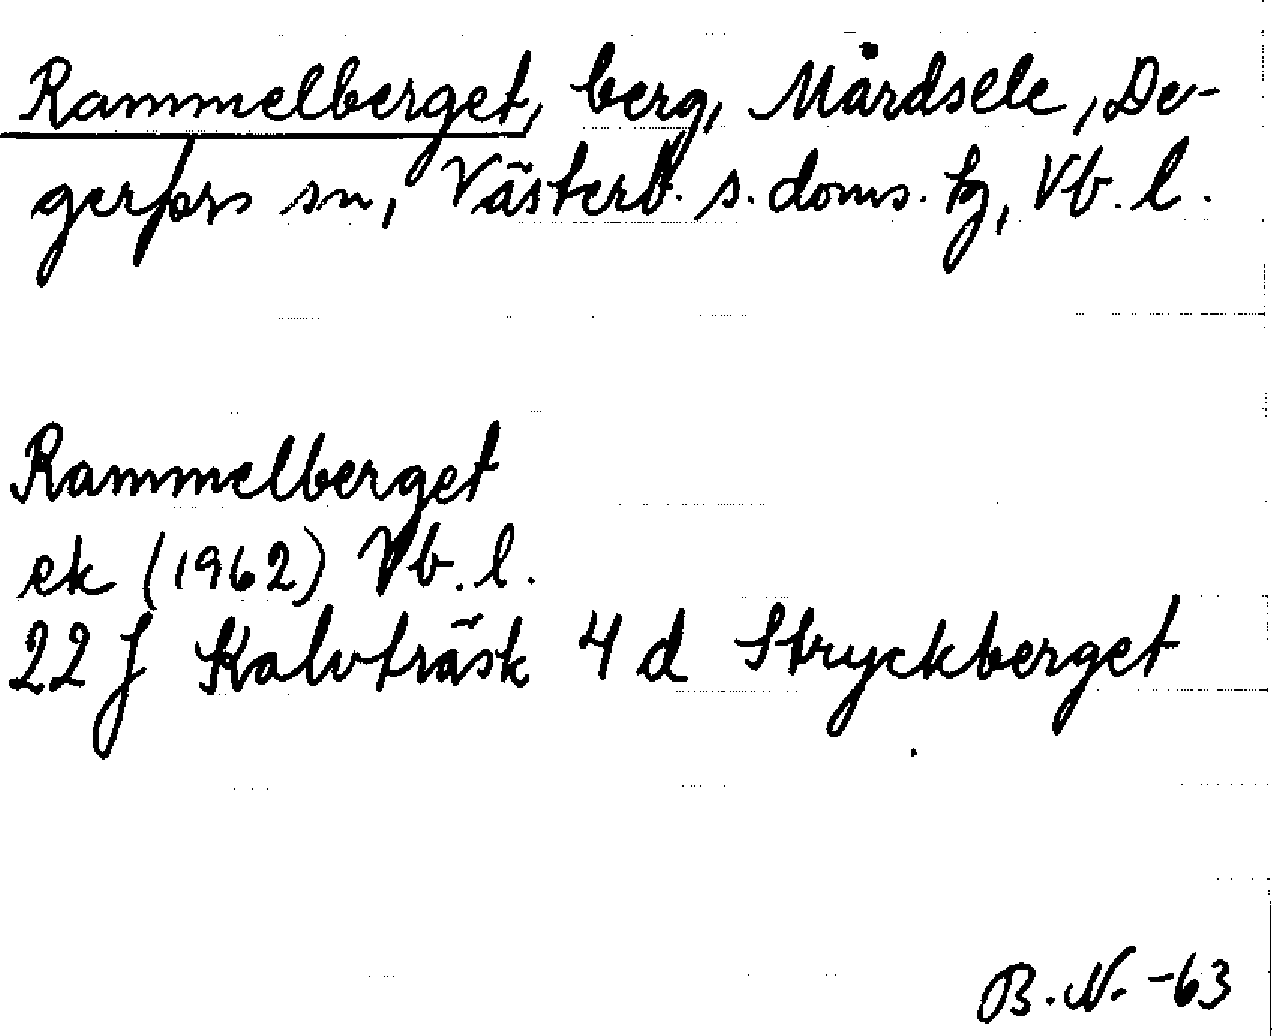 Rammelberget, berg, Mårdsele, De-
gerfors sn, Västerb. s. doms. tg, Vb. l.
Rammelberget
ek (1962) Vb. l.
22 J Kalvträsk 4 d Stryckberget
B. N. -63